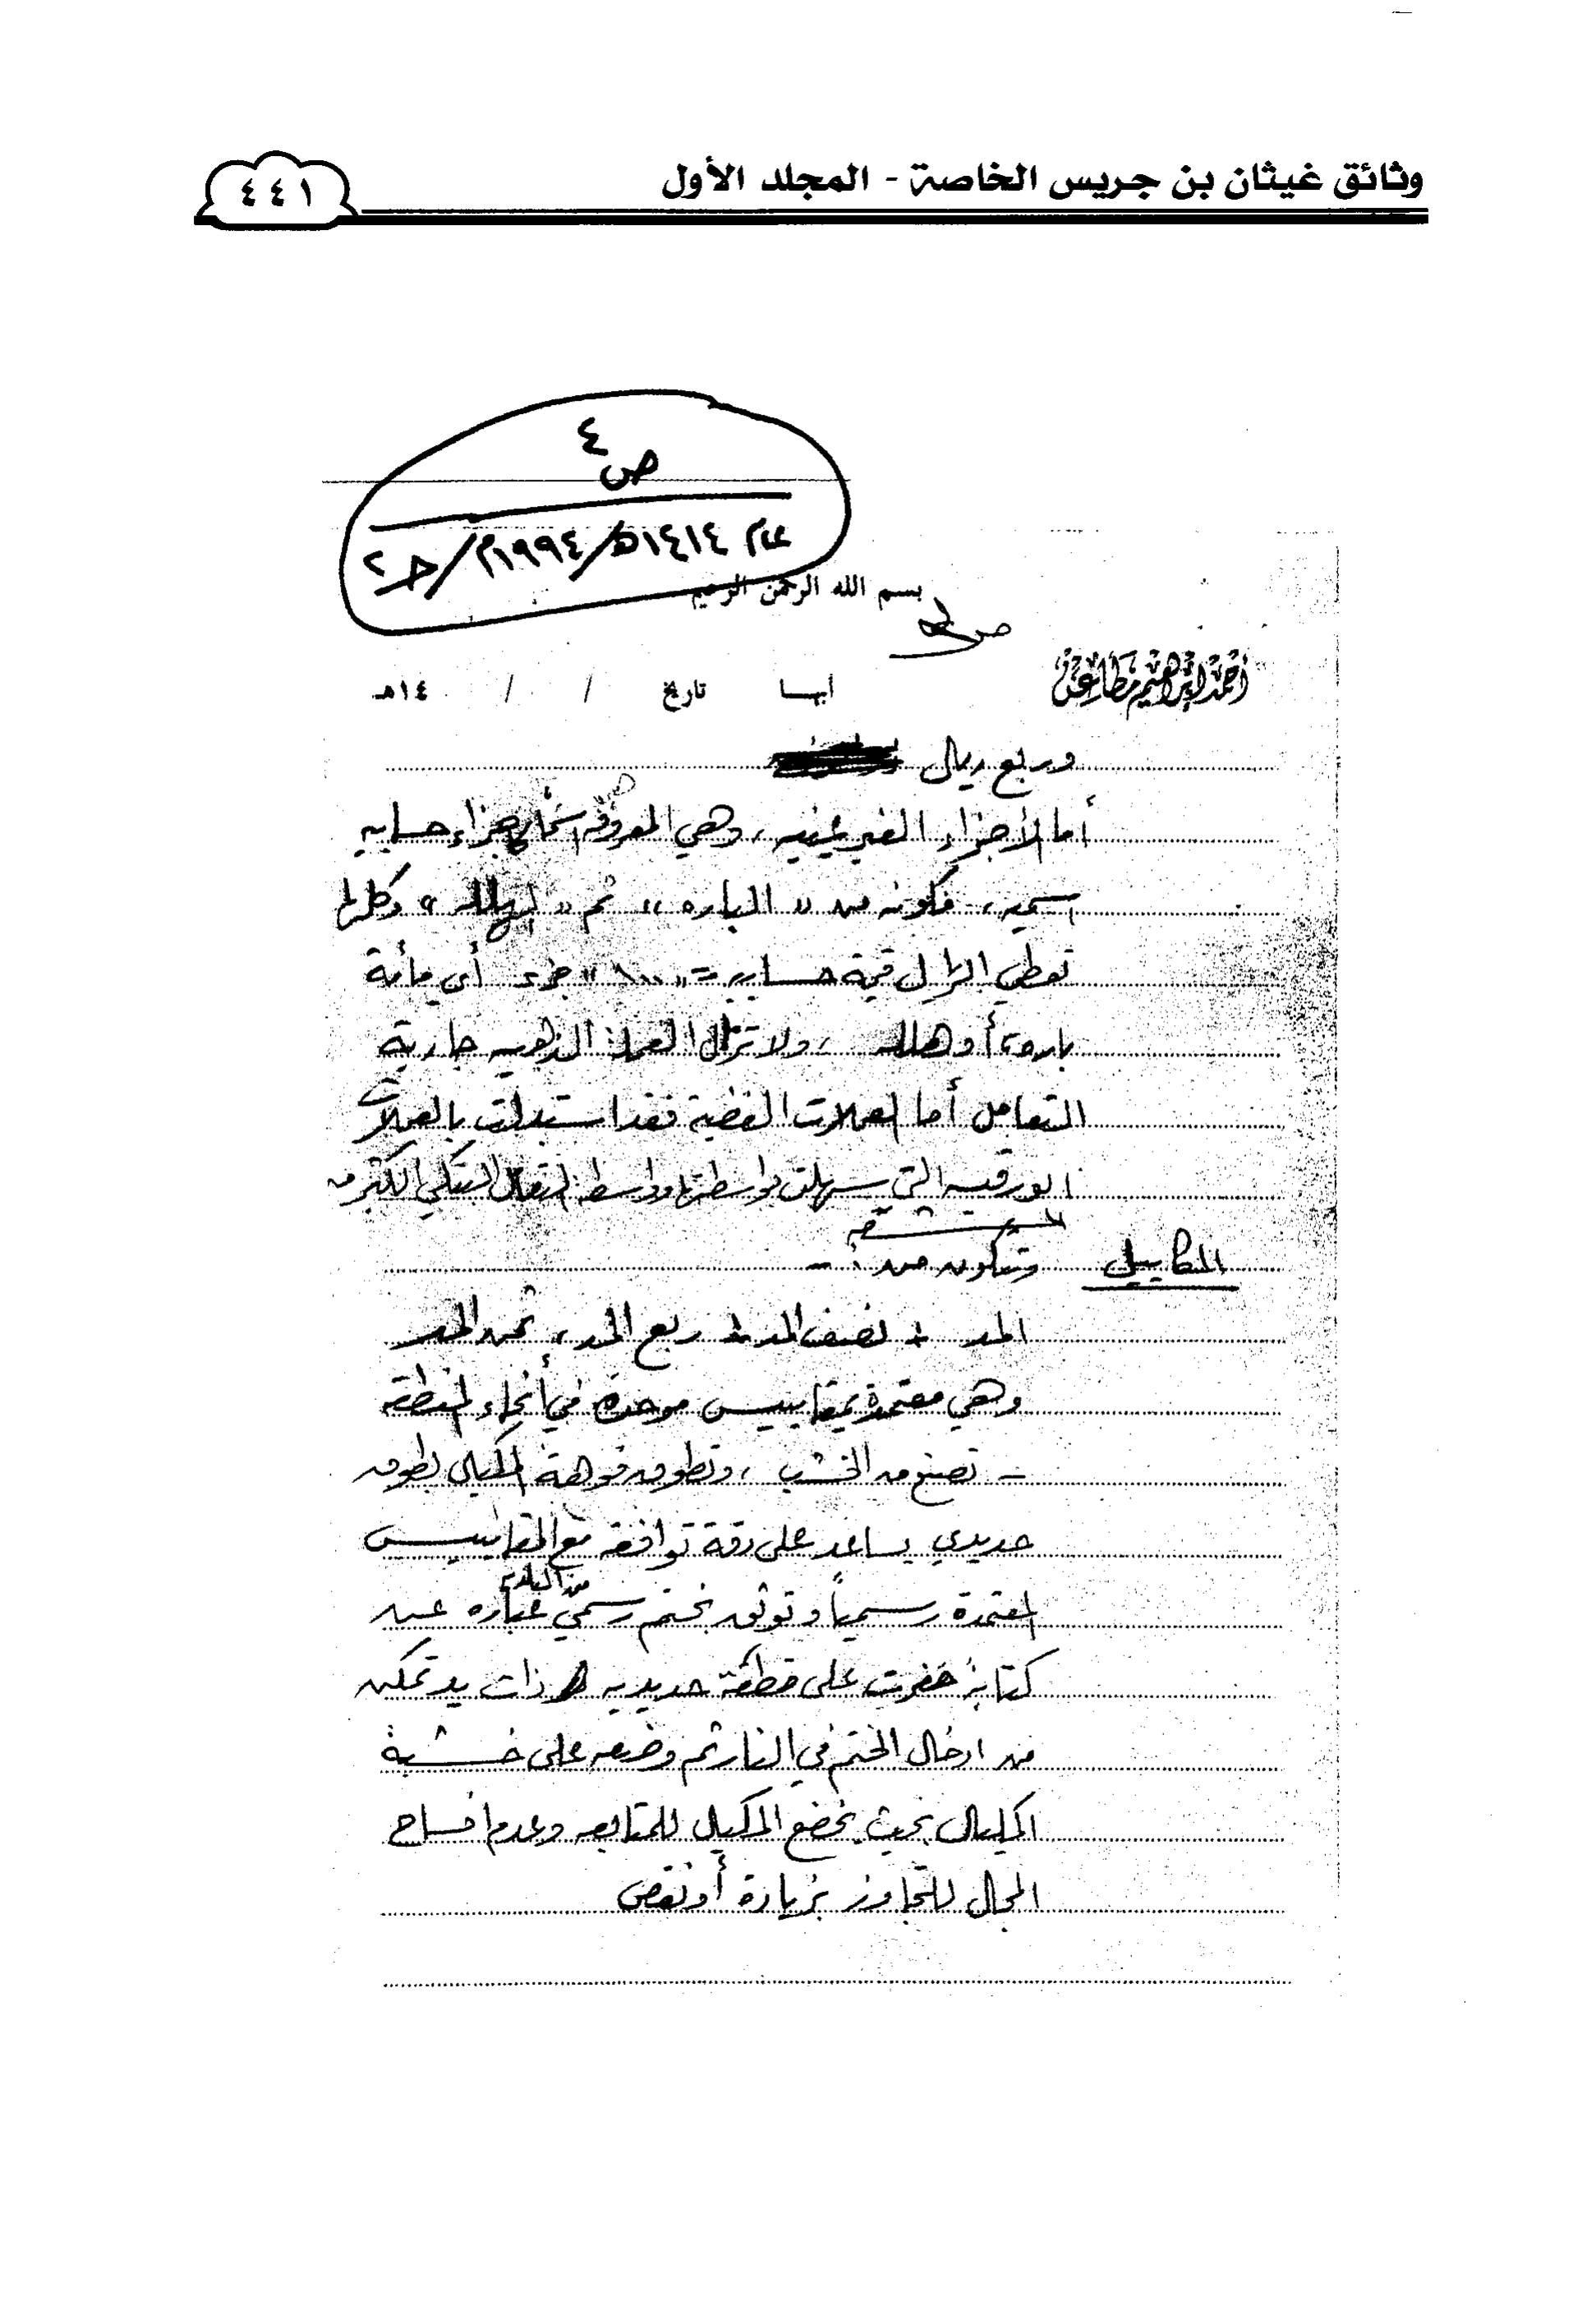 وثائق غيثان بن جريس الخاصة - المجلد الأول
٤٤١
ص ٤
عام ١٤١٤هـ/١٩٩٤م/حـ٢
بسم الله الرحمن الرحيم
أحمد إبراهيم مطاعن
ابها تاريخ / / ١٤هـ
وربع ريال
أما الأجزاء الغير عينيه، وهي المعروفه حسابيه
اسميه، فكونه من « الباره » ثم « الهلله » وكلها
تعطي الريال قيمة حسابيه = « ١٠٠ » جزء أي مائة
باره أو هلله، ولا تزال العملة الذهبيه جارية
التعامل أما العملات الفضية فقد استبدلت بالعملات
الورقيه التي سهلت بواسطتها وواسطه البنكي الكثير من
المشقه
المكاييل وتتكون من : -
المد + نصف المد + ربع المد، ثمن المد
وهي معتمدة بمقاييس موحده في أنحاء المنطقه
- تصنع من الخشب، وتطوق فوهة المكيال بطوق
حديدي يساعد على دقة توافقه مع المقاييس
المعتمدة رسمياً وتوثق بختم رسمي من البلديه عباره عن
كتابة حفرت على قطعة حديديه ذات يد تمكن
من ادخال الختم في النار ثم وضعه على خشبة
المكيال بحيث يخضع المكيال للمتابعه وعدم افساح
المجال للتجاوز بزيادة أو نقص